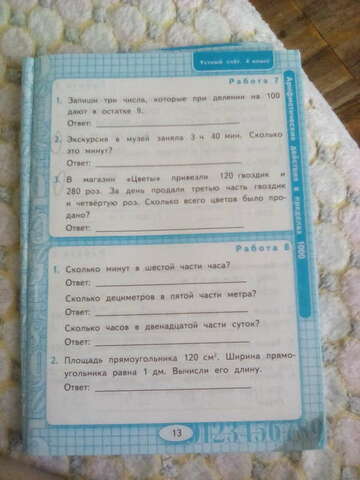 Устный счёт. 4 класс
Работа 7
1. Запиши три числа, которые при делении на 100
дают в остатке 9.
Ответ:
2. Экскурсия в музей заняла 3 ч 40 мин. Сколько
это минут?
Ответ:
3. В магазин «Цветы» привезли 120 гвоздик и
280 роз. За день продали третью часть гвоздик
и четвёртую роз. Сколько всего цветов было про-
дано?
Ответ:
Работа 8
1. Сколько минут в шестой части часа?
Ответ:
Сколько дециметров в пятой части метра?
Ответ:
Сколько часов в двенадцатой части суток?
Ответ:
2. Площадь прямоугольника 120 см². Ширина прямо-
угольника равна 1 дм. Вычисли его длину.
Ответ:
13
0123456789
Арифметические действия в пределах 1000